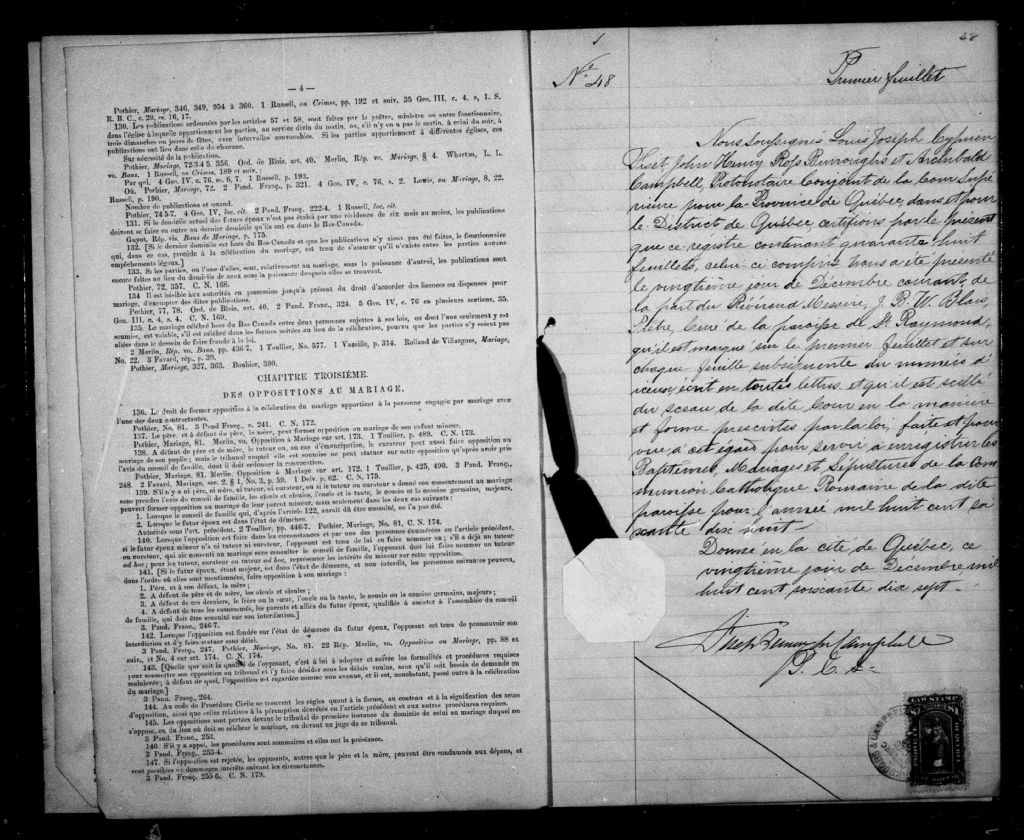 — 4 —
Pothier, Mariage, 346, 349, 954 à 360. 1 Russell, on Crimes, pp. 192 et suiv. 35 Geo. III, c. 4, s, 1. S.
R. B. C., c. 20, ss. 16, 17.
130. Les publications ordonnées par les articles 57 et 58, sont faites par le prêtre, ministre ou autre fonctionnaire,
dans l'église à laquelle appartiennent les parties, au service divin du matin, ou, s'il n'y en a pas le matin, à celui du soir, à
trois dimanches ou jours de fêtes, avec intervalles convenables. Si les parties appartiennent à différentes églises, ces
publications ont lieu dans celle de chacune.
Sur nécessité de la publication.
Pothier, Mariage, 72-3 4 5 256. Ord. de Blois, art. 40. Merlin, Rép. vo. Mariage, § 4. Wharton, L. L.
vo. Bans. 1 Russell, on Crimes, 189 et suiv.:
Par qui. 4 Geo. IV, c. 76, ss. 6, 7. 1 Russell, p. 193.
Où. Pothier, Mariage, 72. 2 Pand. Franç., p. 321. 4 Geo. IV, c. 76, s. 2. Lewis, on Mariage, 8, 22.
Russell, p. 190.
Nombre de publications et quand.
Pothier, 74 5-7. 4 Geo. IV, loc. cit. 2 Pand. Franç. 222-4. 1 Russell, loc. cit.
131. Si le domicile actuel des futurs époux n'est pas établi par une résidence de six mois au moins, les publications
doivent se faire en outre au dernier domicile qu'ils ont eu dans le Bas-Canada.
Guyot, Rép. vis. Bans de Mariage, p. 175.
132. [Si le dernier domicile est hors du Bas-Canada et que les publications n'y aient pas été faites, le fonctionnaire
qui, dans ce cas, procède à la célébration du mariage, est tenu de s'assurer qu'il n'existe entre les parties aucuns
empêchements légaux.]
133. Si les parties, ou l'une d'elles, sont, relativement au mariage, sous la puissance d'autrui, les publications sont
encore faites au lieu du domicile de ceux sous la puissance desquels elles se trouvent.
Pothier, 72, 357. C. N. 168.
134 Il est loisible aux autorités en possession jusqu'à présent du droit d'accorder des licences ou dispenses pour
mariage, d'exempter des dites publications.
Pothier, 77, 78. Ord. de Blois, art. 40. 2 Pand. Franc., 324. 5 Geo. IV, c. 76 en plusieurs sections, 35.
Geo. III, c. 4, s. 4. C. N. 169.
135. Le mariage célébré hors du Bas-Canada entre deux personnes sujettes à ses lois, ou dont l'une seulement y est
soumise, est valable, s'il est célébré dans les formes usitées au lieu de la célébration, pourvu que les parties n'y soient pas
allées dans le dessein de faire fraude à la loi.
2 Merlin, Rép. vo. Bans, pp. 436-7. 1 Toullier, No. 577. 1 Vazeille, p. 314. Rolland de Villargues, Mariage,
No. 22. 3 Favard, rép., p. 39.
Pothier, Mariage, 327, 363. Bouhier, 390.
CHAPITRE TROISIÈME.
DES OPPOSITIONS AU MARIAGE.
136. Le droit de former opposition à la célébration du mariage appartient à la personne engagée par mariage avec
l'une des deux contractantes.
Pothier, No. 81. 3 Pand Franç., p. 241. C. N. 172.
137. Le père, et à défaut du père, la mère, peut former opposition au mariage de son enfant mineur.
Pothier, Mariage, 81. Merlin, vo. Opposition à Mariage sur art. 173. 1 Toullier, p. 489. C. N. 173.
138. A défaut de père et de mère, le tuteur ou, au cas d'émancipation, le curateur peut aussi faire opposition au
mariage de son pupile; mais le tribunal auquel elle est soumise ne peut statuer sur cette opposition qu'après avoir pris
l'avis du conseil de famille, dont il doit ordonner la convocation.
Pothier, Mariage, 81. Merlin, Opposition à Mariage sur art. 172. 1 Toullier, p. 425, 490. 3 Pand. Franç.,
248. 2 Favard, Mariage, sec. 2, § 1, No. 3, p. 59. 1 Delv. p. 62. C. N. 175.
139. S'il n'y a ni père, ni mère, ni tuteur, ni curateur, ou si le tuteur ou curateur a donné son consentement au mariage
sans prendre l'avis du conseil de famille, les aïeuls et aïeules, l'oncle et la tante, le cousin et la cousine germains, majeurs,
peuvent former opposition au mariage de leur parent mineur, mais seulement dans les deux cas suivants:
1. Lorsque le conseil de famille qui, d'après l'article 122, aurait dû être consulté, ne l'a pas été.
2. Lorsque le futur époux est dans l'état de démence.
Autorisés sous Part. précédent, 2 Toullier, pp. 446-7. Pothier, Mariage, No. 81, C. N. 174.
140. Lorsque l'opposition est faite dans les circonstances et par une des personnes énumérées en l'article précédent,
si le futur époux mineur n'a ni tuteur ni curateur, l'opposant est tenu de lui en faire nommer un; s'il a déjà un tuteur
ou curateur, qui ait consenti au mariage sans consulter le conseil de famille, l'opposant doit lui faire nommer un tuteur
ad hoc; pour les tuteur, curateur ou tuteur ad hoc, représenter les intérêts du mineur sur cette opposition.
141. [Si le futur époux, étant majeur, est dans l'état de démence, et non interdit, les personnes suivantes peuvent,
dans l'ordre où elles sont mentionnées, faire opposition à son mariage:
1. Père, et à son défaut, la mère;
2. A défaut de père et de mère, les aïeuls et aïeules;
3. A défaut de ces derniers, le frère ou la sœur, l'oncle ou la tante, le cousin ou la cousine germains, majeurs;
4. A défaut de tous les susnommés, les parents et alliés du futur époux, qualifiés à assister à l'assemblée du conseil
de famille, qui doit être consulté sur son interdiction.]
3. Pand. Franç., 246-7.
142. Lorsque l'opposition est fondée sur l'état de démence du futur époux, l'opposant est tenu de promouvoir son
interdiction et d'y faire statuer sans délai.
3 Pand. Franç., 247. Pothier, Mariage, No. 81. 22 Rép. Merlin, vo. Opposition au Mariage, pp. 88 et
suiv., et No. 4 sur art. 174. C. N. 174.
143. [Quelle que soit la qualité de l'opposant, c'est à lui à adopter et suivre les formalités et procédures requises
pour soumettre son opposition au tribunal et l'y faire décider sous les délais voulus, sans qu'il soit besoin de demande en
mainlevée; à défaut de quoi, l'opposition est regardée comme non avenue, et il est, nonobstant, passé outre à la célébration
du mariage.]
3 Pand. Franç., 264.
144. Au code de Procédure Civile se trouvent les règles quant à la forme, au contenu et à la signification des actes
d'opposition, ainsi que celles relatives à la péremption décrétée en l'article précédent et aux autres procédures requises.
145. Les oppositions sont portées devant le tribunal de première instance du domicile de celui au mariage duquel on
s'oppose, ou du lieu où doit se célébrer le mariage, ou devant un juge de ce tribunal.
3 Pand. Franç., 253.
146. S'il y a appel, les procédures sont sommaires et elles ont la préséance.
3 Pand. Franç., 253-4.
147. Si l'opposition est rejetée, les opposants, autres que le père et la mère, peuvent être condamnés aux dépens, et
sont passibles de dommages-intérêts suivant les circonstances.
3 Pand. Franç. 255-6. C. N. 179.
1
Nº 48
48
Premier feuillet
Nous soussignés Louis Joseph Cyprien
Fiset, John Henry Ross Burroughs et Archibald
Campbell, Protonotaire Conjoint de la Cour Supé
rieure pour la Province de Québec, dans et pour
le District de Québec certifions par le présent
que ce registre contenant quarante huit
feuillets, celui-ci compris, nous a été présenté
le vingtième jour de Décembre courant, de
la part du Révérend Messire, J. R. W. Blais,
Prêtre, Curé de la paroisse de St. Raymond,
qu'il est marqué sur le premier feuillet et sur
chaque feuille subséquente du numéro d'
iceux, écrit en toutes lettres, et qu'il est scellé
du sceau de la dite Cour en la manière
et forme prescrites par la loi, faite et pour
vue à cet égard pour servir à enregistrer les
Baptêmes, Mariages et Sépultures de la Com
munion Catholique Romaine de la dite
paroisse pour l'année mil huit cent so
ixante dix huit.
Donné en la cité de Québec, ce
vingtième jour de Décembre mil
huit cent soixante dix sept.
Fiset Burroughs Campbell
P. C. S.
LAW STAMP